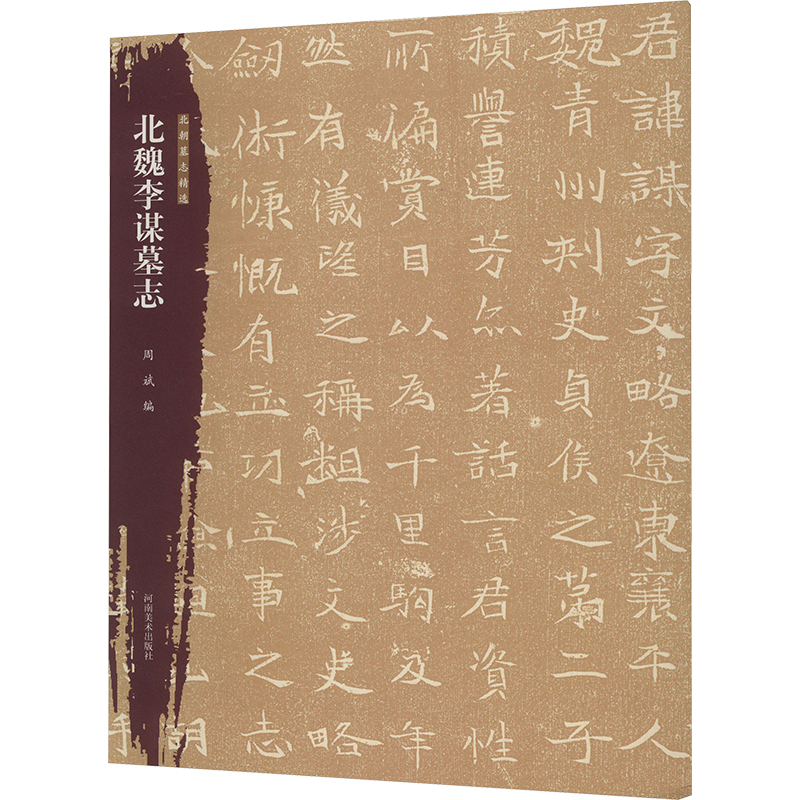 北朝墓志精选
北魏李谋墓志
周斌 编
河南美术出版社
君諱謀字文略遼東襄平人
魏青州刾史貞侯之苐二子
積譽連芳亦著話言君資性
所偏賞目以為千里駒及年
然有儀望之稱粗涉文史略
劒術慷慨有立功立事之志